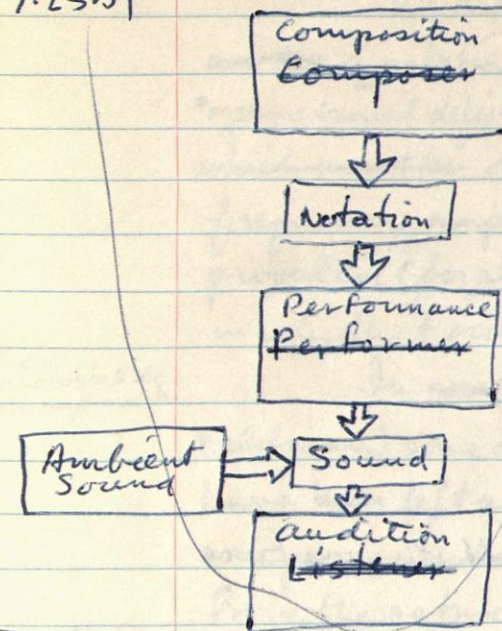 Composition
Composer
Notation
Performance
Performer
Ambient
Sound
Sound
Audition
Listener